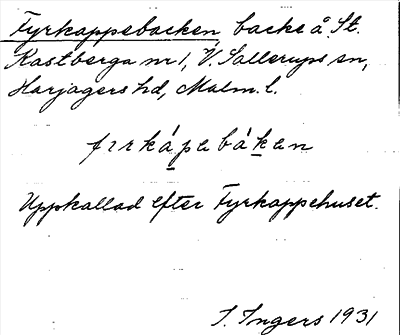 Fyrkappebacken backe å St.
Kastberga nr 1, V. Sallerups sn,
Harjagers hd, Malm. l.
fırkápabákan
Uppkallad efter Fyrkappehuset.
I. Ingers 1931